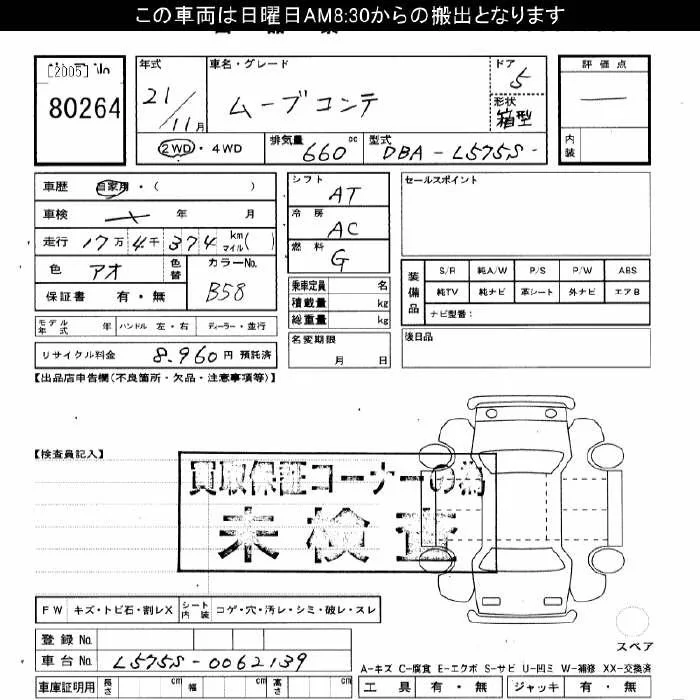 この車両は日曜日AM8:30からの搬出となります
[2005]
80264
年式 車名・グレード ドア 評価点
21/11月 ムーブコンテ 5
形状
箱型
2WD・4WD 排気量 660 cc 型式 DBA-L575S- 内装
車歴 自家用・( ) シフト AT セールスポイント
車検 年 月 冷房 AC
走行 17万 4千 374 km マイル( ) 燃料 G
色 アオ 色替 カラーNo. B58
保証書 有・無
乗車定員 名
積載量 kg
総重量 kg
装備品 S/R 純A/W P/S P/W ABS
純TV 純ナビ 革シート 外ナビ エアB
ナビ型番:
モデル年式 年 ハンドル 左・右 ディーラー・並行
名変期限 月 日
後日品
リサイクル料金 8,960 円 預託済
【出品店申告欄(不良箇所・欠品・注意事項等)】
【検査員記入】
買取保証コーナーの為
未検査
FW キズ・トビ石・割レX シート内装 コゲ・穴・汚レ・シミ・破レ・スレ
スペア
登録No.
車台No. L575S-0062139
A-キズ C-腐食 E-エクボ S-サビ U-凹ミ W-補修 XX-交換済
車庫証明用 長さ cm 幅 cm 高さ cm 工具 有・無 ジャッキ 有・無